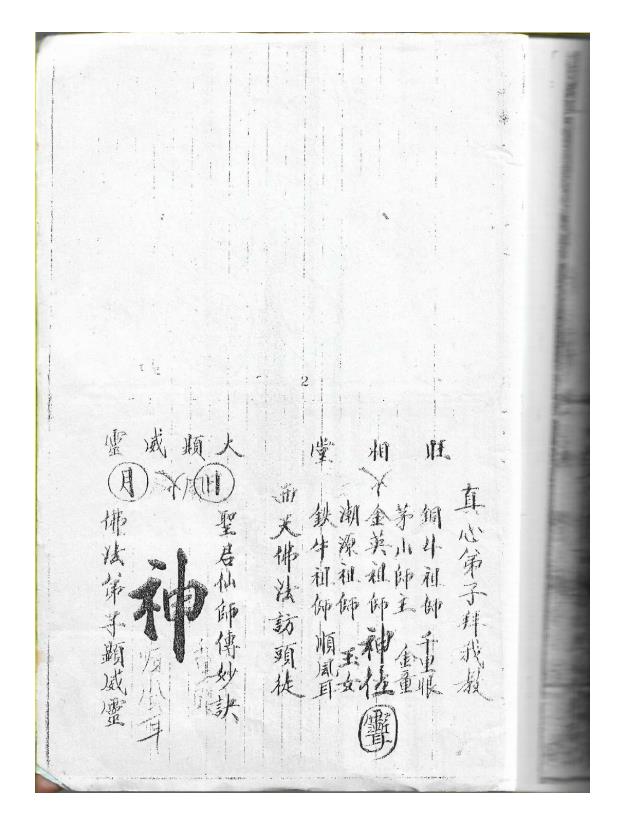 2
真心弟子拜我教
旺相堂
銅牛祖師 千里眼
茅山師主 金童
金英祖師 神位
潮源祖師 玉女
鉄牛祖師 順風耳
天佛法訪頭徒
大顯威靈
日
聖君仙師傳妙訣
千里眼
神
順風耳
月
佛法弟子顯威靈